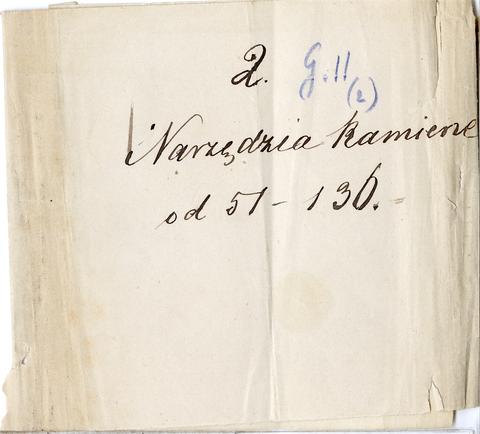 2. G. 11
(2)
Narzędzia Kamiene
od 51 - 136.